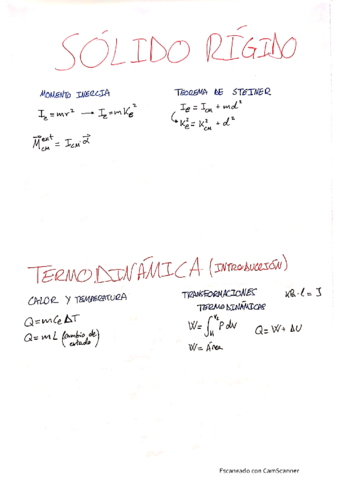 SÓLIDO RÍGIDO
MOMENTO INERCIA
I_e = mr² → I_e = mK_e²
M⃗_CM^ext = I_CM · α⃗
TEOREMA DE STEINER
I_e = I_CM + md²
K_e² = K_CM² + d²
TERMODINÁMICA (INTRODUCCIÓN)
CALOR Y TEMPERATURA
Q = m Ce ΔT
Q = m L (cambio de estado)
TRANSFORMACIONES
TERMODINÁMICAS
W = ∫ P dV
W = Área
Q = W + ΔU
Escaneado con CamScanner